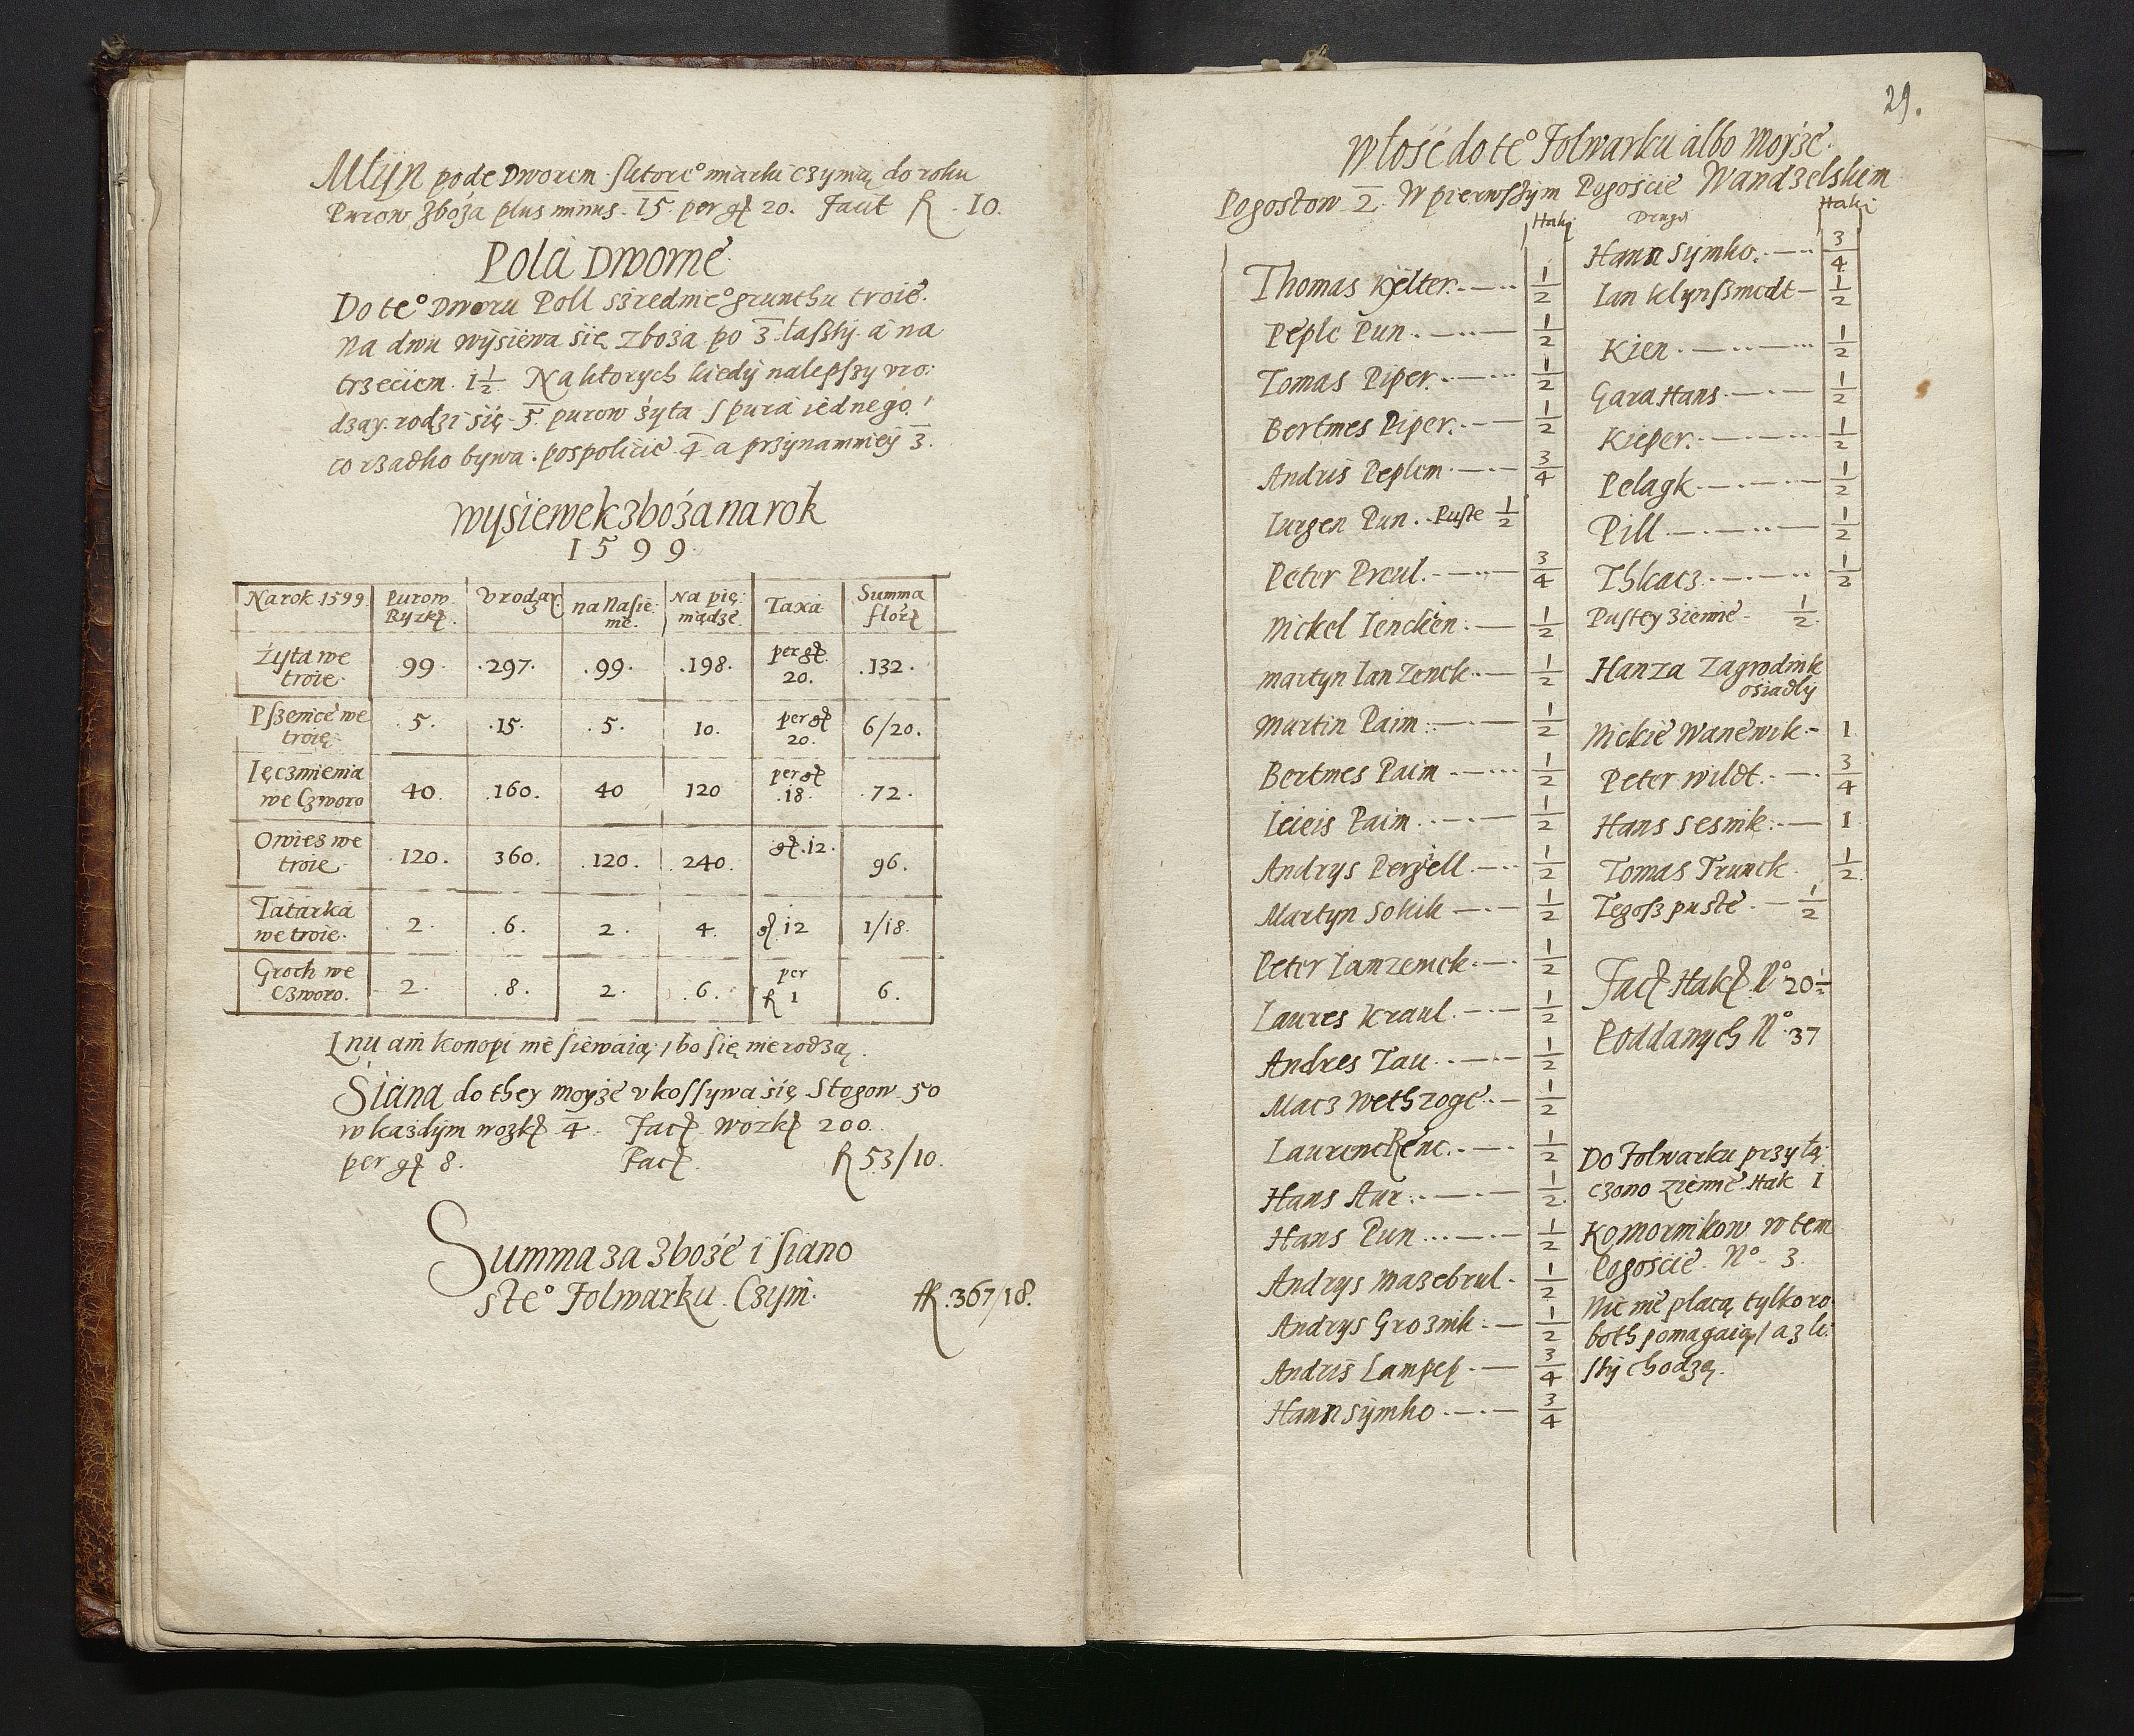 Młyn pode Dworem. sktoreº miarki czynią do roku
Purow zboża plus minus. 15. per gr 20. Facit fl. 10.
Pola Dworne
Do teº Dworu Poll szrednieº grunthu troie.
Na dwu wysiewa się zboża po 3 łaszty. a na
trzeciem. 1 1/2 Na ktorych kiedy nalepszy vro:
dzay. rodzi się. 5. purow żyta s pura iednego /
co rzadko bywa. pospolicie. 4. a przynamniey 3.
wysiewek zboża na rok
1599
Na rok 1599. | Purow Ryzk. | Vrodzay. | na Nasie: nie. | Na pię: niądze. | Taxa | Summa flor.
Żyta we troie. | 99. | .297. | .99. | .198. | per gr. 20. | .132.
Pszenice we troię. | .5. | .15. | .5. | 10. | per gr 20. | 6/20.
Ięczmienia we Czworo | 40. | .160. | 40 | 120 | per gr .18. | .72.
Owies we troie. | .120. | 360. | .120. | 240. | gr. 12. | 96.
Tatarka we troie. | 2. | .6. | 2. | 4. | gr. 12 | 1/18.
Groch we Czworo. | 2. | .8. | 2. | .6. | per fl 1 | 6.
Lnu ani konopi nie siewaią / bo się nie rodzą.
Siana do they moyze vkossywa się Stogow. 50
w kazdym wozk. 4. Fac. Wozk. 200.
per gr 8. Fac. fl 53/10.
Summa za zboże i siano
s teº Folwarku. Czyni. fl. 367/18.
29.
Włość do teº Folwarku albo Moyze.
Pogostow 2. W pierwszym Pogoscie Wandzelskim
Haki
Thomas Kyelter. 1/2
Peple Pun. 1/2
Tomas Piper. 1/2
Bertmes Piper. 1/2
Andris Peplem 3/4
Iurgen Pun. Puste 1/2
Peter Preul. 3/4
Nickel Iencken. 1/2
martyn Ian Zenck. 1/2
Martin Paim. 1/2
Bertmes Paim 1/2
Ieieis Paim 1/2
Andrys Perzell 1/2
Martyn Sokik 1/2
Peter Ianzenick. 1/2
Laures Kraul. 1/2
Andres Tau. 1/2
Macz Wethzoge. 1/2
Laurenc Renc. 1/2
Hans Aur. 1/2
Hans Pun 1/2
Andrys Mazebrul. 1/2
Andrys Groznik. 1/2
Andris Lampep. 3/4
Hann Symko 3/4
Drugi Haki
Hann Symko. 3/4
Ian Klynszmedt 1/2
Kien. 1/2
Gara Hans. 1/2
Kieper. 1/2
Pelagk. 1/2
Pill 1/2
Thkacz. 1/2
Pustey ziemie. 1/2.
Hanza Zagrodnik
osiadły
Nickie Wanewik. 1
Peter Wildt. 3/4
Hans Sesnik. 1
Tomas Trunck. 1/2.
Tegosz puste. 1/2
Fac. Hak. Nº 20 1/2
Poddanych Nº. 37
Do Folwarku przyłą:
czono ziemie. Hak 1
Komornikow w tem
Pogoscie. Nº. 3.
Nic nie płacą tylko ro
both pomagaią / a z li:
sty chodzą.